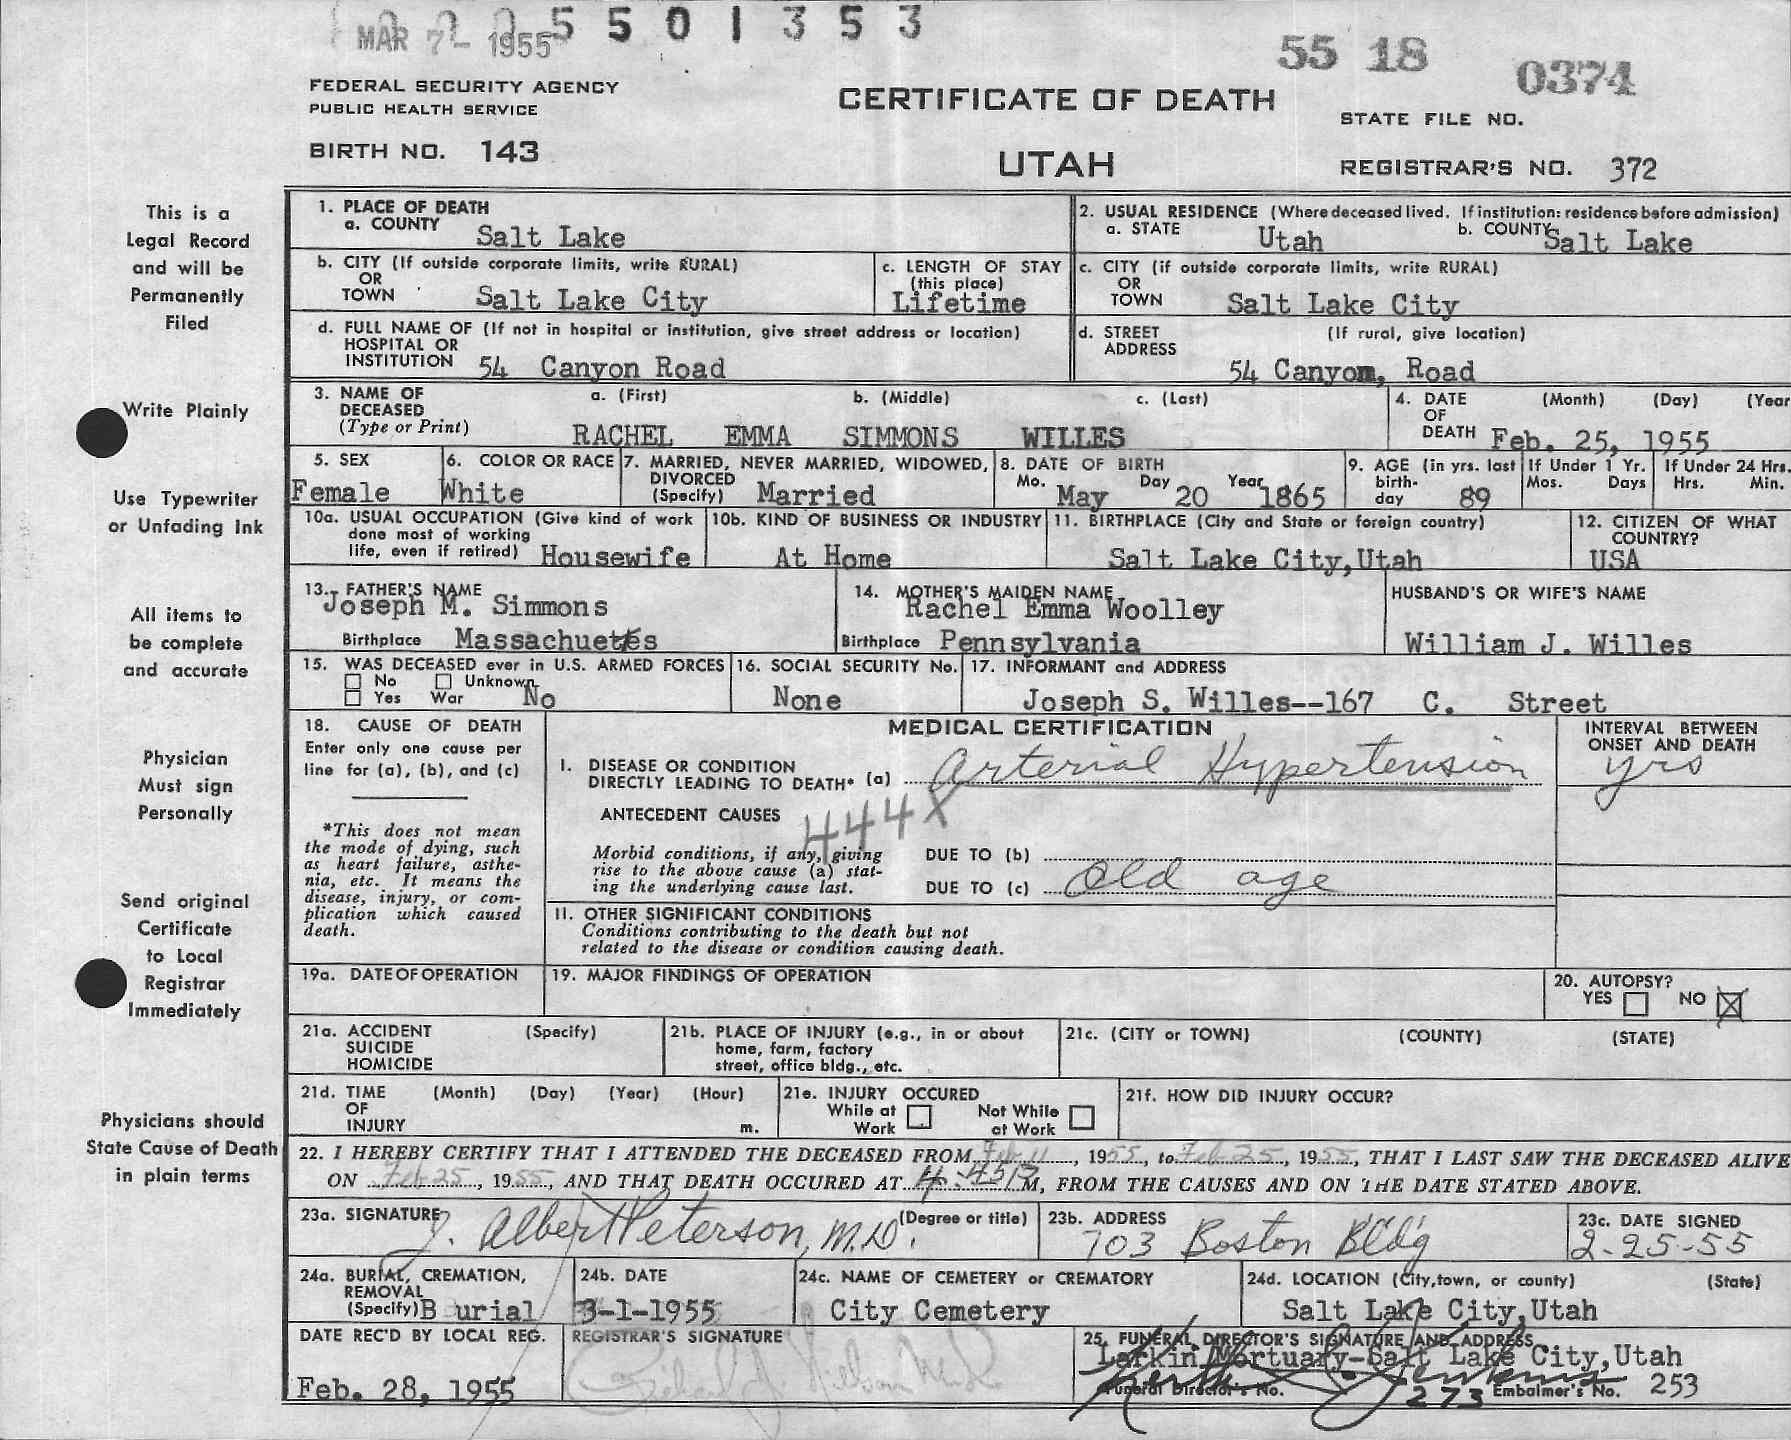 MAR 7- 1955 5 5 0 1 3 5 3
55 18 0374
FEDERAL SECURITY AGENCY
PUBLIC HEALTH SERVICE
CERTIFICATE OF DEATH
STATE FILE NO.
BIRTH NO. 143
UTAH
REGISTRAR'S NO. 372
This is a
Legal Record
and will be
Permanently
Filed
Write Plainly
Use Typewriter
or Unfading Ink
All items to
be complete
and accurate
Physician
Must sign
Personally
Send original
Certificate
to Local
Registrar
Immediately
Physicians should
State Cause of Death
in plain terms
1. PLACE OF DEATH
a. COUNTY Salt Lake
2. USUAL RESIDENCE (Where deceased lived. If institution: residence before admission)
a. STATE Utah b. COUNTY Salt Lake
b. CITY (If outside corporate limits, write RURAL)
OR
TOWN Salt Lake City
c. LENGTH OF STAY
(this place)
Lifetime
c. CITY (if outside corporate limits, write RURAL)
OR
TOWN Salt Lake City
d. FULL NAME OF (If not in hospital or institution, give street address or location)
HOSPITAL OR
INSTITUTION 54 Canyon Road
d. STREET (If rural, give location)
ADDRESS
54 Canyon, Road
3. NAME OF a. (First) b. (Middle) c. (Last)
DECEASED
(Type or Print) RACHEL EMMA SIMMONS WILLES
4. DATE (Month) (Day) (Year
OF
DEATH Feb. 25, 1955
5. SEX
Female
6. COLOR OR RACE
White
7. MARRIED, NEVER MARRIED, WIDOWED,
DIVORCED
(Specify) Married
8. DATE OF BIRTH
Mo. May Day 20 Year 1865
9. AGE (in yrs. last
birth-
day 89
If Under 1 Yr.
Mos. Days
If Under 24 Hrs.
Hrs. Min.
10a. USUAL OCCUPATION (Give kind of work
done most of working
life, even if retired) Housewife
10b. KIND OF BUSINESS OR INDUSTRY
At Home
11. BIRTHPLACE (City and State or foreign country)
Salt Lake City,Utah
12. CITIZEN OF WHAT
COUNTRY?
USA
13. FATHER'S NAME
Joseph M. Simmons
Birthplace Massachuetts
14. MOTHER'S MAIDEN NAME
Rachel Emma Woolley
Birthplace Pennsylvania
HUSBAND'S OR WIFE'S NAME
William J. Willes
15. WAS DECEASED ever in U.S. ARMED FORCES
No Unknown
Yes War No
16. SOCIAL SECURITY No.
None
17. INFORMANT and ADDRESS
Joseph S. Willes--167 C. Street
18. CAUSE OF DEATH
Enter only one cause per
line for (a), (b), and (c)
*This does not mean
the mode of dying, such
as heart failure, asthe-
nia, etc. It means the
disease, injury, or com-
plication which caused
death.
MEDICAL CERTIFICATION
INTERVAL BETWEEN
ONSET AND DEATH
I. DISEASE OR CONDITION
DIRECTLY LEADING TO DEATH* (a) Arterial Hypertension yrs
ANTECEDENT CAUSES 444X
Morbid conditions, if any, giving
rise to the above cause (a) stat-
ing the underlying cause last.
DUE TO (b)
DUE TO (c) Old age
II. OTHER SIGNIFICANT CONDITIONS
Conditions contributing to the death but not
related to the disease or condition causing death.
19a. DATE OF OPERATION
19. MAJOR FINDINGS OF OPERATION
20. AUTOPSY?
YES NO X
21a. ACCIDENT (Specify)
SUICIDE
HOMICIDE
21b. PLACE OF INJURY (e.g., in or about
home, farm, factory
street, office bldg., etc.
21c. (CITY or TOWN) (COUNTY) (STATE)
21d. TIME (Month) (Day) (Year) (Hour)
OF
INJURY m.
21e. INJURY OCCURED
While at Not While
Work at Work
21f. HOW DID INJURY OCCUR?
22. I HEREBY CERTIFY THAT I ATTENDED THE DECEASED FROM Feb 11, 1955, to Feb 25, 1955, THAT I LAST SAW THE DECEASED ALIVE
ON Feb 25, 1955, AND THAT DEATH OCCURED AT 4:45 P M, FROM THE CAUSES AND ON THE DATE STATED ABOVE.
23a. SIGNATURE (Degree or title)
J. Albert Peterson, M.D.
23b. ADDRESS
703 Boston Bldg
23c. DATE SIGNED
2-25-55
24a. BURIAL, CREMATION,
REMOVAL
(Specify) B urial
24b. DATE
3-1-1955
24c. NAME OF CEMETERY or CREMATORY
City Cemetery
24d. LOCATION (City,town, or county) (State)
Salt Lake City,Utah
DATE REC'D BY LOCAL REG.
Feb. 28, 1955
REGISTRAR'S SIGNATURE
25. FUNERAL DIRECTOR'S SIGNATURE AND ADDRESS
Larkin Mortuary-Salt Lake City,Utah
Funeral Director's No. 273 Embalmer's No. 253